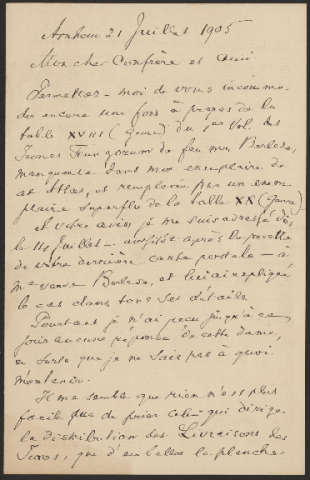 Arnhem 21 Juillet 1905
Mon cher Confrère et ami
Permettez-moi de vous incommo-
der encore une fois à propos de la
table XVIII (Genre) du 1er Vol. des
Icones Fungorum de feu Mr Boudier,
manquante dans mon exemplaire de
cet Atlas, et remplacée par un exem-
plaire superflu de la table XX (Genre)
A votre avis je me suis adressé dès
le 14 Juillet — aussitôt après la recette
de votre dernière carte postale — à
Me veuve et lui ai expliqué
le cas dans tous ses détails
Pourtant je n'ai reçu jusqu'à ce
jour aucune réponse de cette dame,
en sorte que je ne sais pas à quoi
m'attendre.
Il me semble que rien n'est plus
facile que de prier celui qui dirige
la distribution des Livraisons des
Icones, que d'emballer la planche